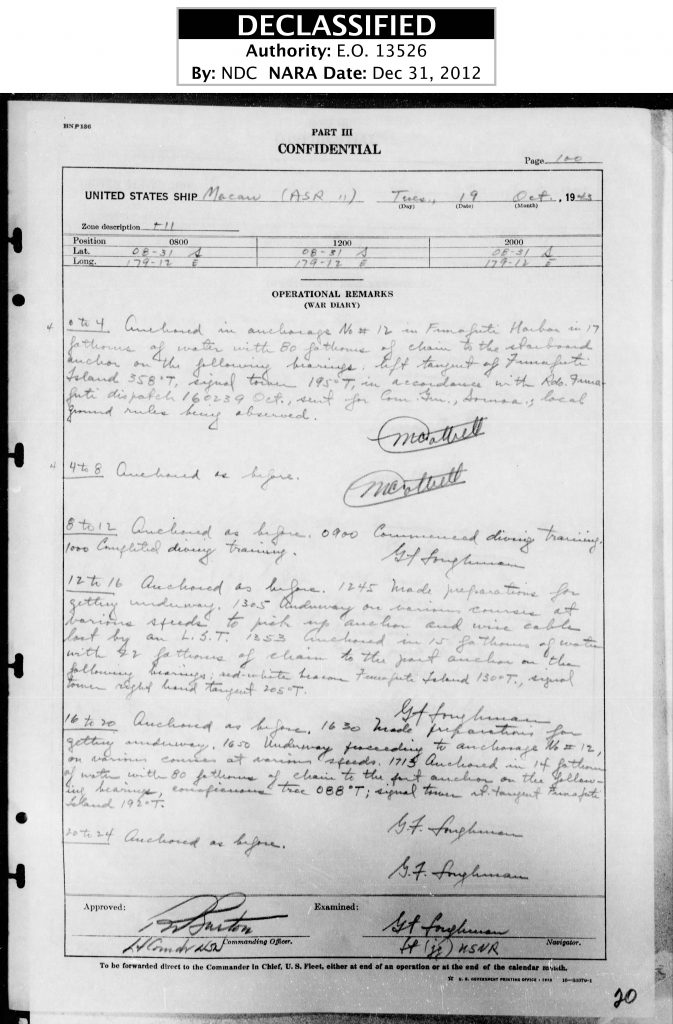 DECLASSIFIED
Authority: E.O. 13526
By: NDC NARA Date: Dec 31, 2012
BNP136
PART III
CONFIDENTIAL
Page 100
UNITED STATES SHIP Macaw (ASR 11) Tues., 19 Oct., 1943
(Day) (Date) (Month)
Zone description +11
Position 0800 1200 2000
Lat. 08-31 S 08-31 S 08-31 S
Long. 179-12 E 179-12 E 179-12 E
OPERATIONAL REMARKS
(WAR DIARY)
4 0 to 4 Anchored in anchorage No # 12 in Funafuti Harbor in 17
fathoms of water with 80 fathoms of chain to the starboard
anchor on the following bearings: left tangent of Funafuti
Island 358°T, signal tower 195°T, in accordance with Funa-
futi dispatch 160239 Oct., sent for Com. Gen., local
ground rules being observed.
4 4 to 8 Anchored as before.
8 to 12 Anchored as before. 0900 Commenced diving training.
1000 Completed diving training.
G F Loughman
12 to 16 Anchored as before. 1245 Made preparations for
getting underway. 1305 Underway on various courses at
various speeds to pick up anchor and wire cable
lost by an L.S.T. 1353 Anchored in 15 fathoms of water
with 22 fathoms of chain to the port anchor on the
following bearings; red-white beacon Funafuti Island 130°T., signal
tower right hand tangent 205°T.
G F Loughman
16 to 20 Anchored as before. 1630 Made preparations for
getting underway. 1650 Underway proceeding to anchorage No # 12,
on various courses at various speeds. 1715 Anchored in 14 fathoms
of water with 80 fathoms of chain to the port anchor on the follow-
ing bearings, conspicuous tree 088°T; signal tower tangent Funafuti
Island 192°T.
G. F. Loughman
20 to 24 Anchored as before.
G. F. Loughman
Approved: Examined:
Burton G F Loughman
Lt Comdr USN Commanding Officer. Lt (jg) USNR Navigator.
To be forwarded direct to the Commander in Chief, U. S. Fleet, either at end of an operation or at the end of the calendar month.
U. S. GOVERNMENT PRINTING OFFICE
20